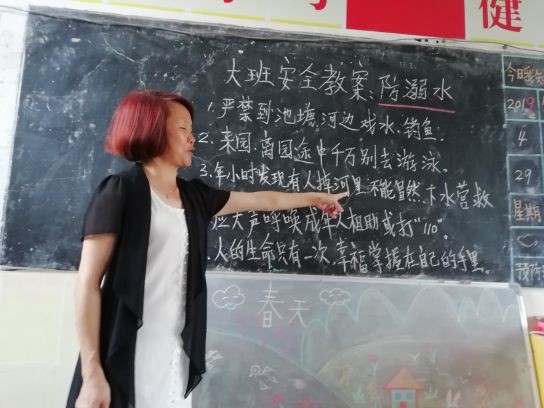 健
大班安全教案:防溺水
1.严禁到池塘,河边戏水,钓鱼。
2.来园,离园途中千万别去游泳。
3.年小时发现有人掉河里,不能冒然下水营救
应大声呼唤成年人相助或打"110"。
人的生命只有一次,幸福掌握在自己的手里。
今日
2019
4
29
星期
春天